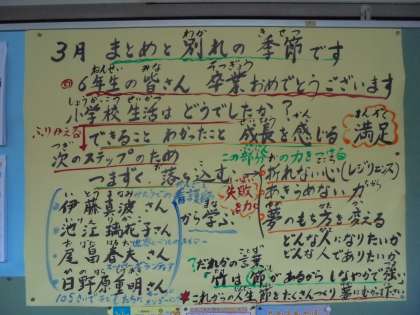 3月 まとめと 別れの 季節です
6年生の皆さん 卒業 おめでとうございます
小学校生活は どうでしたか?
ふりかえる できること わかったこと 成長を感じる 満足
次のステップのため この部分 の力をつける
つまずく 落ち込む 折れない心(レジリエンス)
失敗を力に あきらめない 力
伊藤真波さん 看護師 から学ぶ
夢のもち方を変える
池江璃花子さん どんな人になりたいか
尾畠春夫さん どんな人でありたいか
日野原重明さん ?だれかの言葉
竹は節があるからしなやかで強い
105さい
これからの人生 節をたくさんつくり